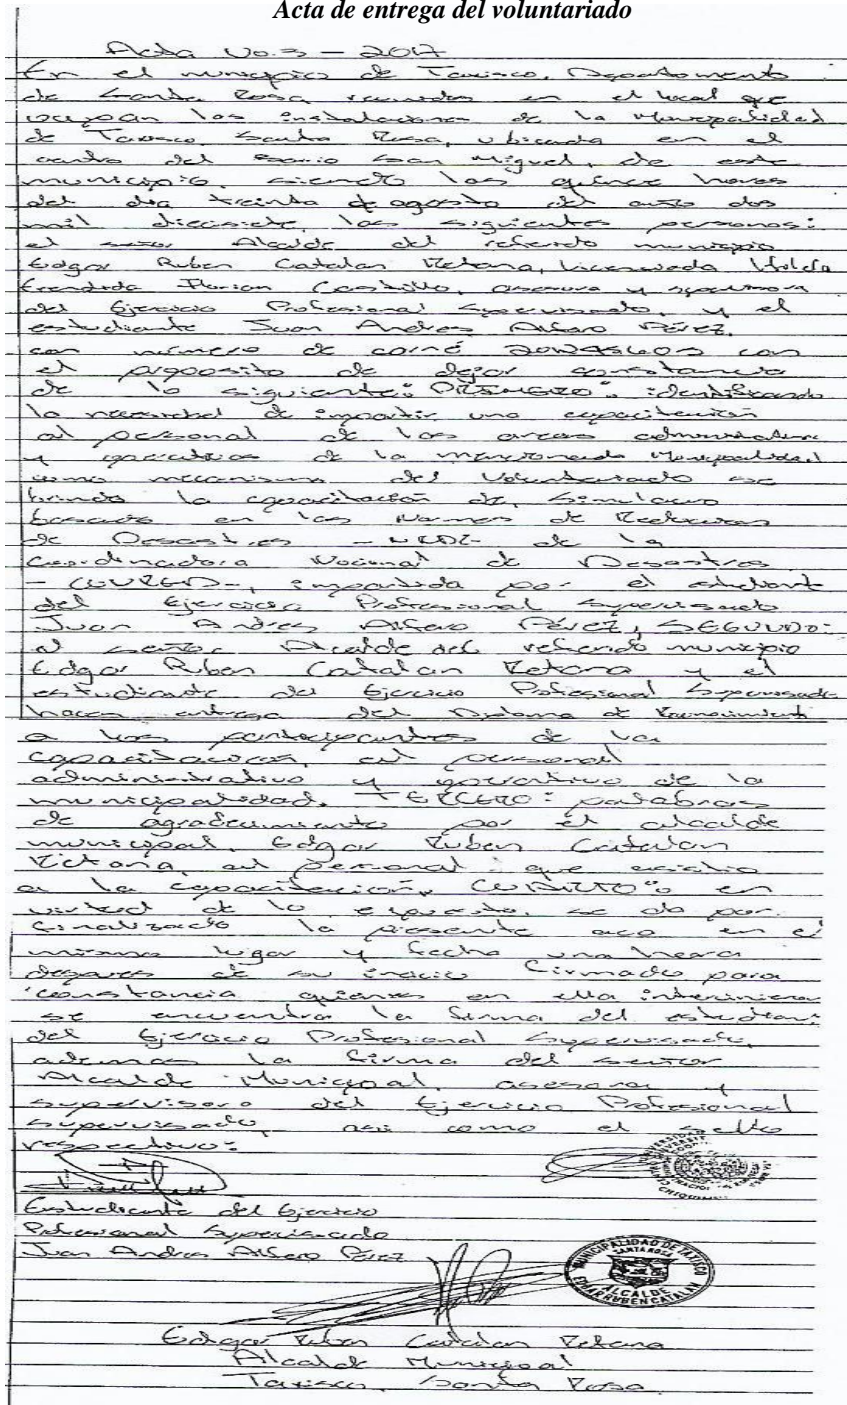 Acta de entrega del voluntariado
Acta No. 3 – 2017
En el municipio de Taxisco, Departamento
de Santa Rosa, reunidos en el local que
ocupan las instalaciones de la Municipalidad
de Taxisco, Santa Rosa, ubicada en el
centro del Barrio San Miguel, de este
municipio, siendo las quince horas
del día treinta de agosto del año dos
mil diecisiete, las siguientes personas:
el señor Alcalde del referido municipio
Edgar Ruben Catalan Retana, Licenciada
Florian Castillo, asesora y
del Ejercicio Profesional Supervisado, y el
estudiante Juan Andres Alfaro Pérez,
con número de carné con
el proposito de dejar constancia
de lo siguiente: PRIMERO: identificando
la necesidad de impartir una capacitación
al personal de las areas administrativa
y operativas de la mencionada Municipalidad
como mecanismo del Voluntariado se
brindo la capacitación de, Simulacro
basado en las Normas de Reduccion
de Desastres – NRD2- de la
Coordinadora Nacional de Desastres
– CONRED-, impartida por el estudiante
del Ejercicio Profesional Supervisado
Juan Andres Alfaro Pérez, SEGUNDO:
el señor Alcalde del referido municipio
Edgar Ruben Catalan Retana y el
estudiante del Ejercicio Profesional Supervisado
hacen entrega del Diploma de Reconocimiento
a los participantes de la
capacitacion, al personal
administrativo y operativo de la
municipalidad. TERCERO: palabras
de agradecimiento por el alcalde
municipal, Edgar Ruben Catalan
Retana, al personal que asistio
a la capacitación, CUARTO: en
virtud de lo expuesto, se da por
finalizado la presente en el
mismo lugar y fecha una hora
despues de su inicio firmado para
constancia quienes en ella
se encuentra la firma del
del Ejercicio Profesional Supervisado,
ademas la firma del señor
Alcalde Municipal, asesora y
supervisora del Ejercicio Profesional
Supervisado, asi como el sello
respectivo:
Estudiante del Ejercicio
Profesional Supervisado
Juan Andres Alfaro Pérez
MUNICIPALIDAD DE TAXISCO
SANTA ROSA
ALCALDE
EDGAR RUBEN CATALAN
Edgar Ruben Catalan Retana
Alcalde Municipal
Taxisco, Santa Rosa